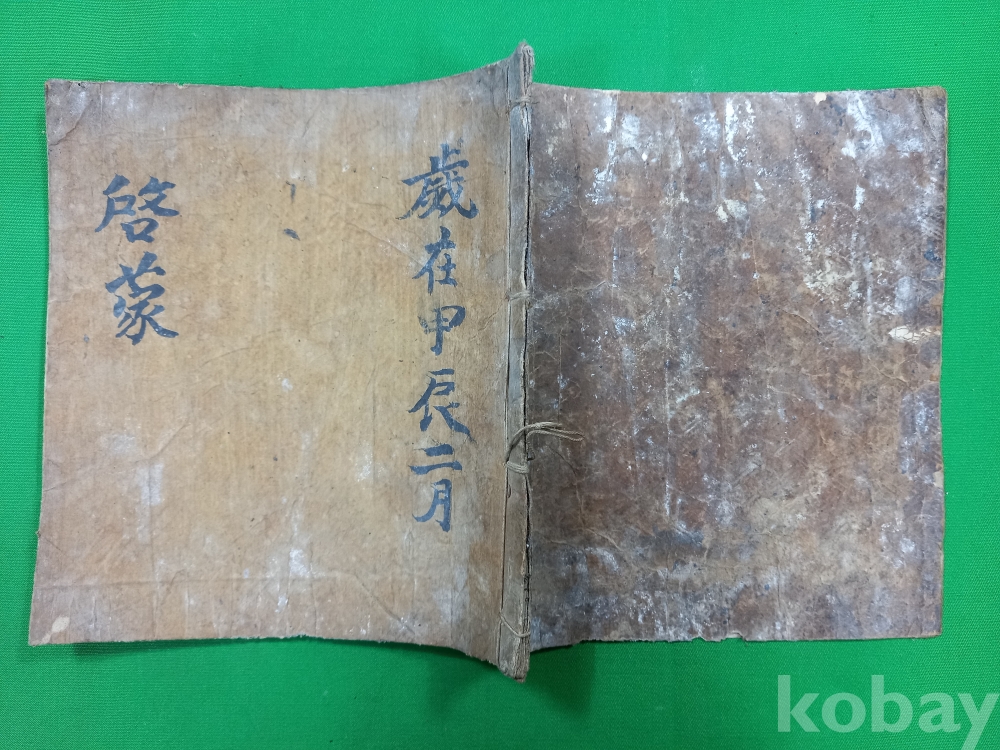 歲在甲辰二月
啓蒙
kobay